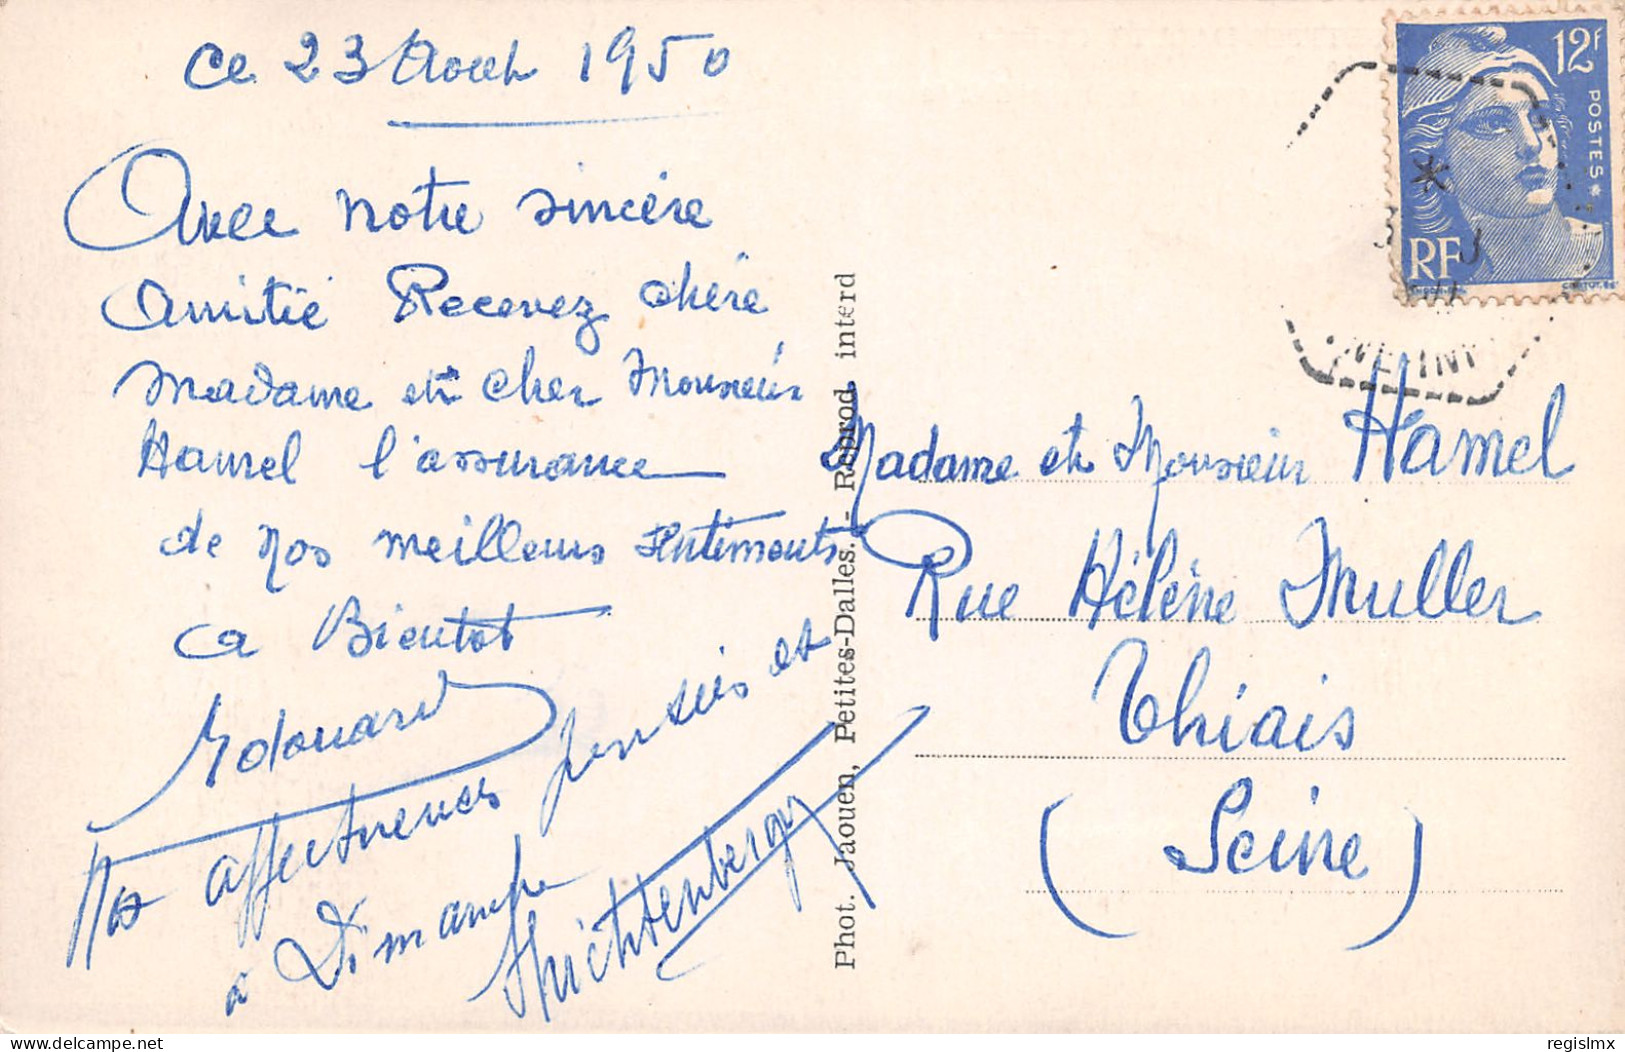 ce 23 Août 1950
Avec notre sincère
amitié Recevez chère
Madame et cher Monsieur
Hamel l'assurance
de nos meilleurs sentiments
a Bientot
Edouard
Nos affectueuses pensées et
a Dimanche
12f
POSTES
RF
Phot. Jaouen, Petites-Dalles. - Reprod. interd
Madame et Monsieur Hamel
Rue Hélène Muller
Thiais
(Seine)
regislmx